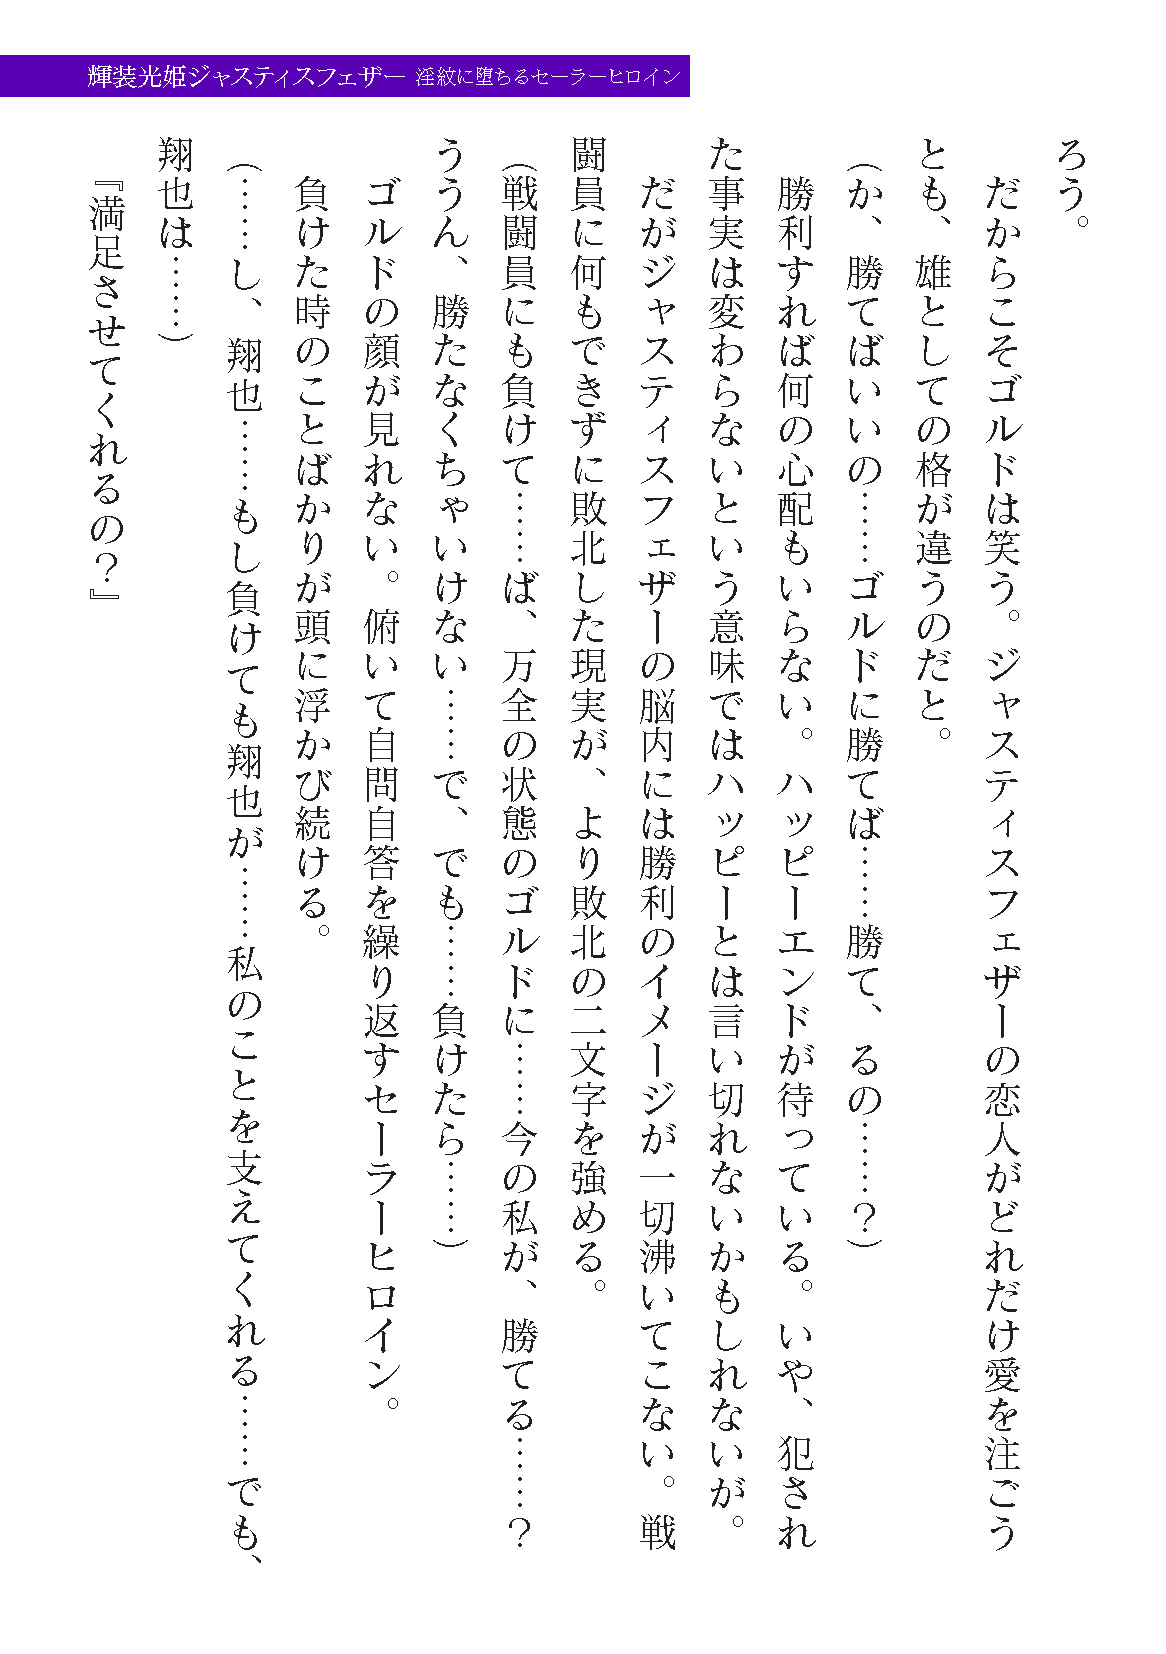 輝装光姫ジャスティスフェザー 淫紋に堕ちるセーラーヒロイン
ろう。
　だからこそゴルドは笑う。ジャスティスフェザーの恋人がどれだけ愛を注ごう
とも、雄としての格が違うのだと。
（か、勝てばいいの……ゴルドに勝てば……勝て、るの……？）
　勝利すれば何の心配もいらない。ハッピーエンドが待っている。いや、犯され
た事実は変わらないという意味ではハッピーとは言い切れないかもしれないが。
　だがジャスティスフェザーの脳内には勝利のイメージが一切沸いてこない。戦
闘員に何もできずに敗北した現実が、より敗北の二文字を強める。
（戦闘員にも負けて……ば、万全の状態のゴルドに……今の私が、勝てる……？
ううん、勝たなくちゃいけない……で、でも……負けたら……）
　ゴルドの顔が見れない。俯いて自問自答を繰り返すセーラーヒロイン。
　負けた時のことばかりが頭に浮かび続ける。
（……し、翔也……もし負けても翔也が……私のことを支えてくれる……でも、
翔也は……）
『満足させてくれるの？』